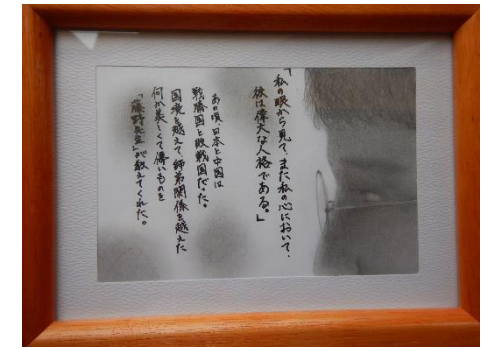 「私の眼から見て、また私の心において、
彼は偉大な人格である。」
あの頃、日本と中国は
戦勝国と敗戦国だった。
国境を越えて師弟関係を越えた
何か美しくて儚いものを
「藤野先生」が教えてくれた。